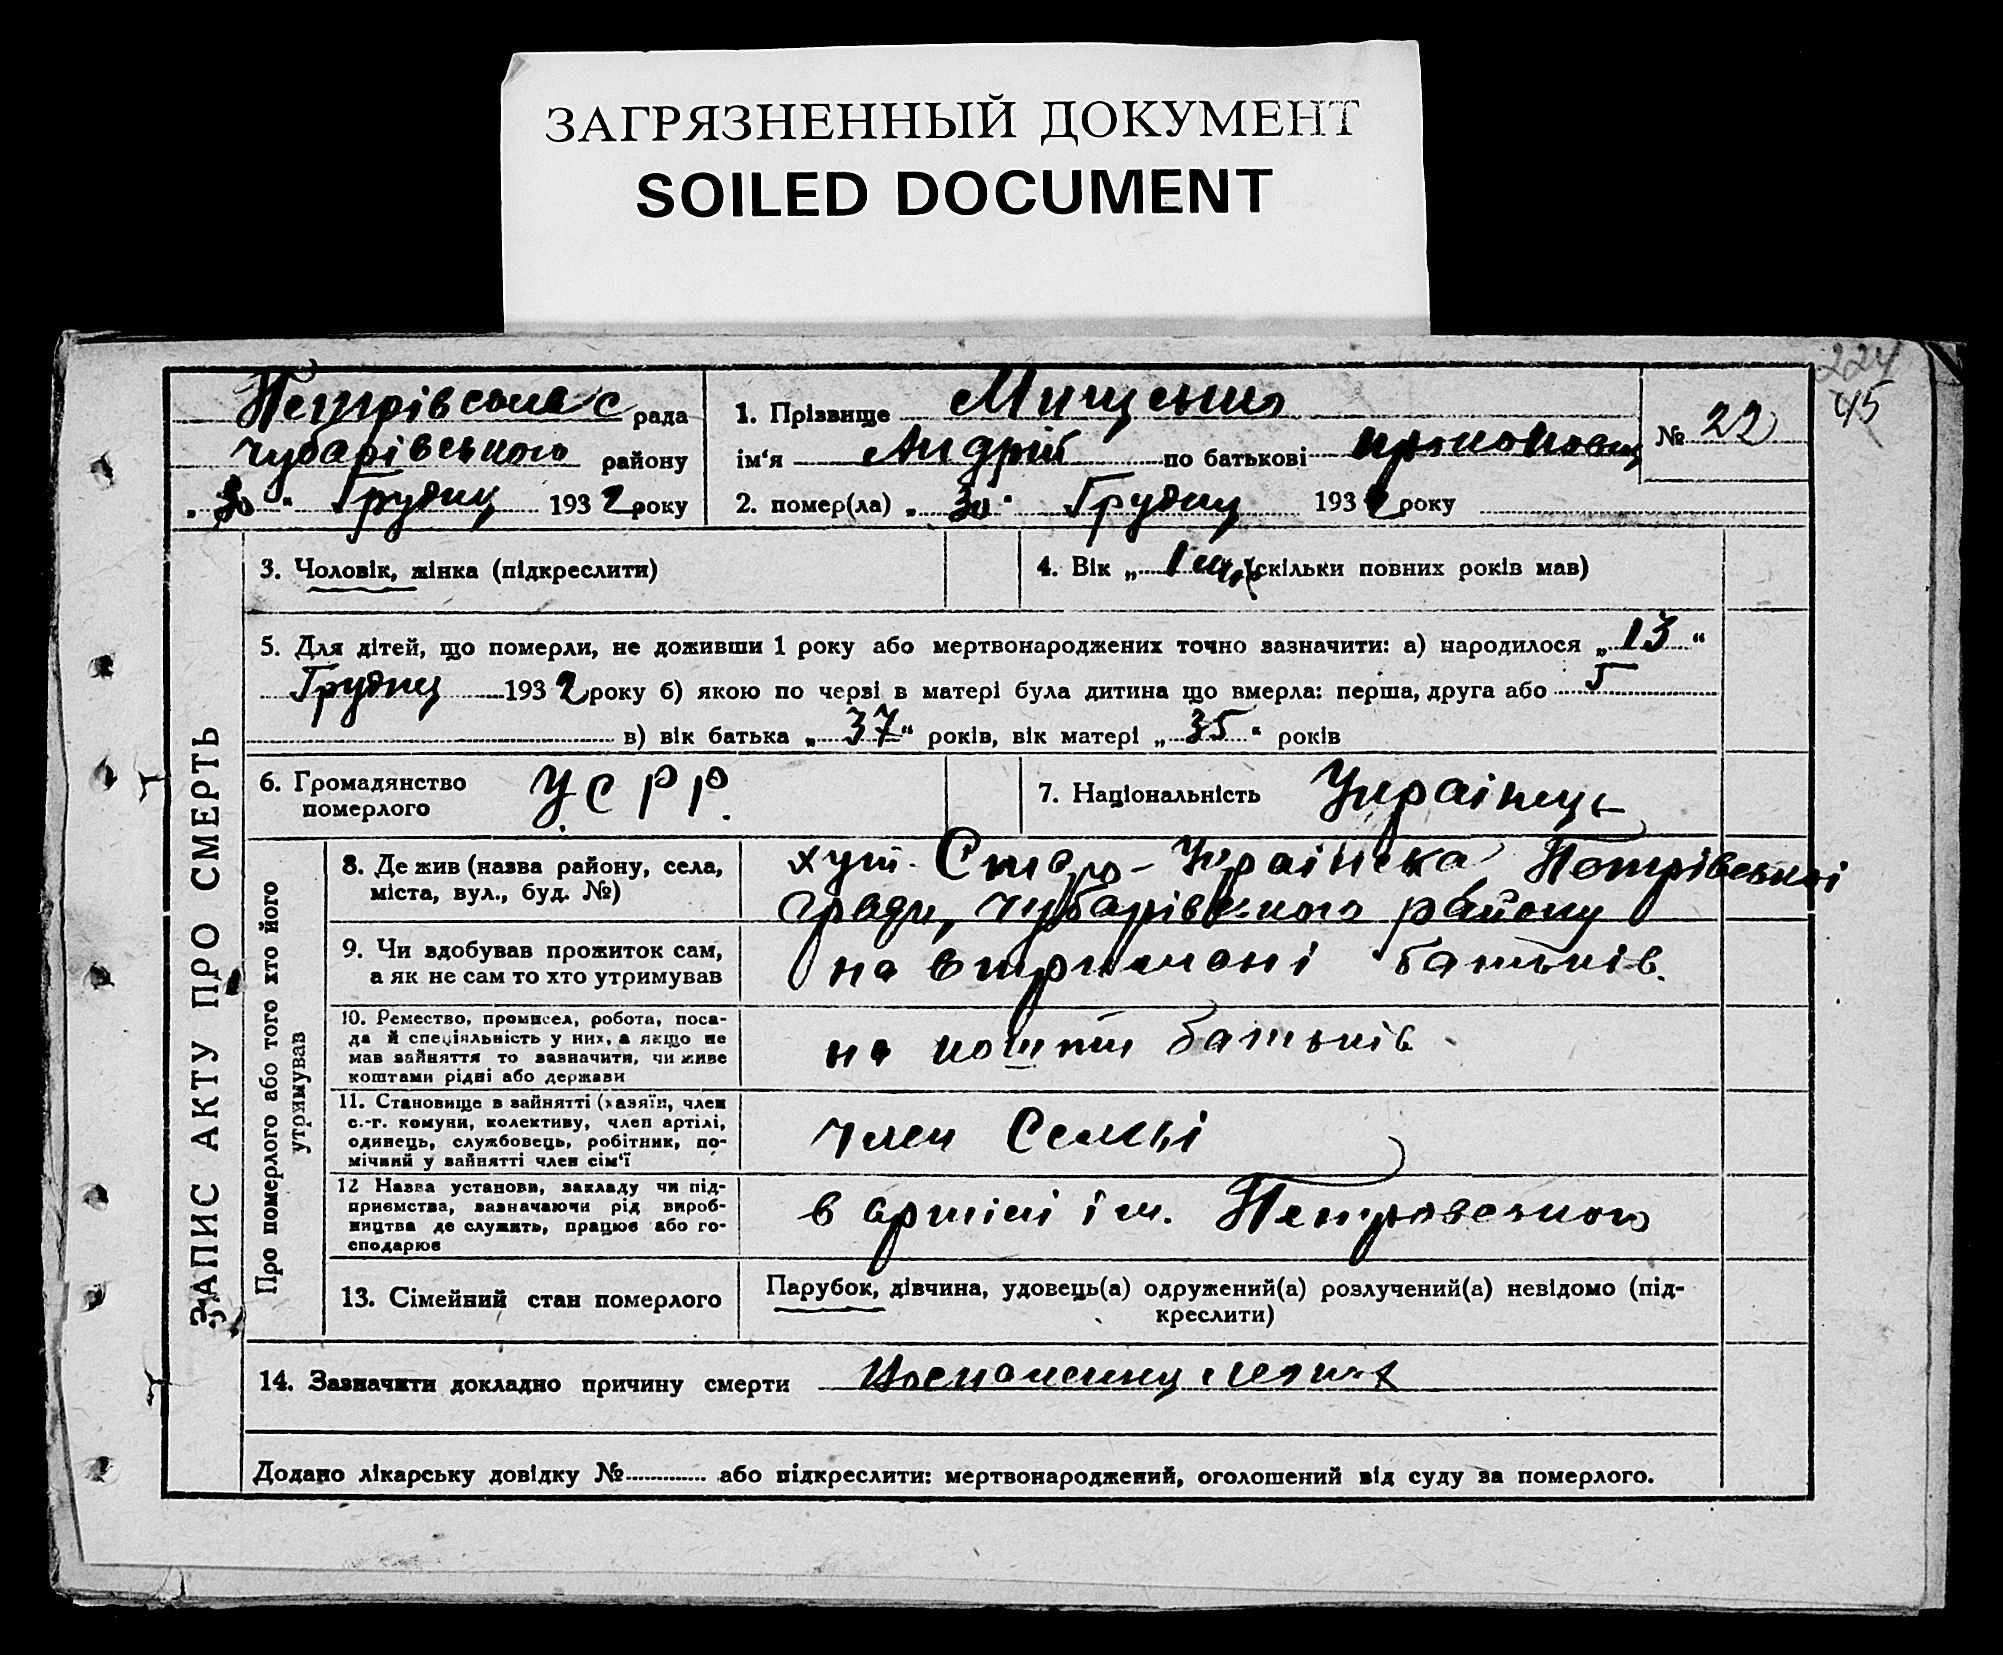 ЗАГРЯЗНЕННЫЙ ДОКУМЕНТ
SOILED DOCUMENT
224
45
Петрівська с рада
Чубарівського району
„30“ Грудня 1932 року
1. Прізвище Мищенко
ім‘я Андрій по батькові
№ 22
2. помер(ла) „30“ Грудня 1932 року
ЗАПИС АКТУ ПРО СМЕРТЬ
3. Чоловік, жінка (підкреслити)
4. Вік „ 1 (скільки повних років мав)
5. Для дітей, що померли, не доживши 1 року або мертвонароджених точно зазначити: а) народилося „13“
Грудня 1932 року б) якою по черві в матері була дитина що вмерла: перша, друга або 5
в) вік батька „37“ років, вік матері „35“ років
6. Громадянство
померлого
УСРР.
7. Національність Українець
Про померлого або того хто його
утримував
8. Де жив (назва району, села,
міста, вул., буд. №)
хут. Старо-Українска Петрівської
с/ради, Чубарівського району
9. Чи здобував прожиток сам,
а як не сам то хто утримував
на втримані батьків.
10. Ремество, промисел, робота, поса-
да й спеціяльність у них, а якщо не
мав зайняття то зазначити, чи живе
коштами рідні або держави
на кошти батьків
11. Становище в зайнятті (хазяїн, член
с.-г. комуни, колективу, член артілі,
одинець, службовець, робітник, по-
мічний у зайнятті член сім‘ї
член Семьі
12 Назва установи, закладу чи під-
приємства, зазначаючи рід вироб-
ництва де служить, працює або го-
сподарює
в артілі ім. Петровського
13. Сімейний стан померлого
Парубок, дівчина, удовець(а) одружений(а) розлучений(а) невідомо (під-
креслити)
14. Зазначити докладно причину смерти
Додано лікарську довідку № або підкреслити: мертвонароджений, оголошений від суду за померлого.